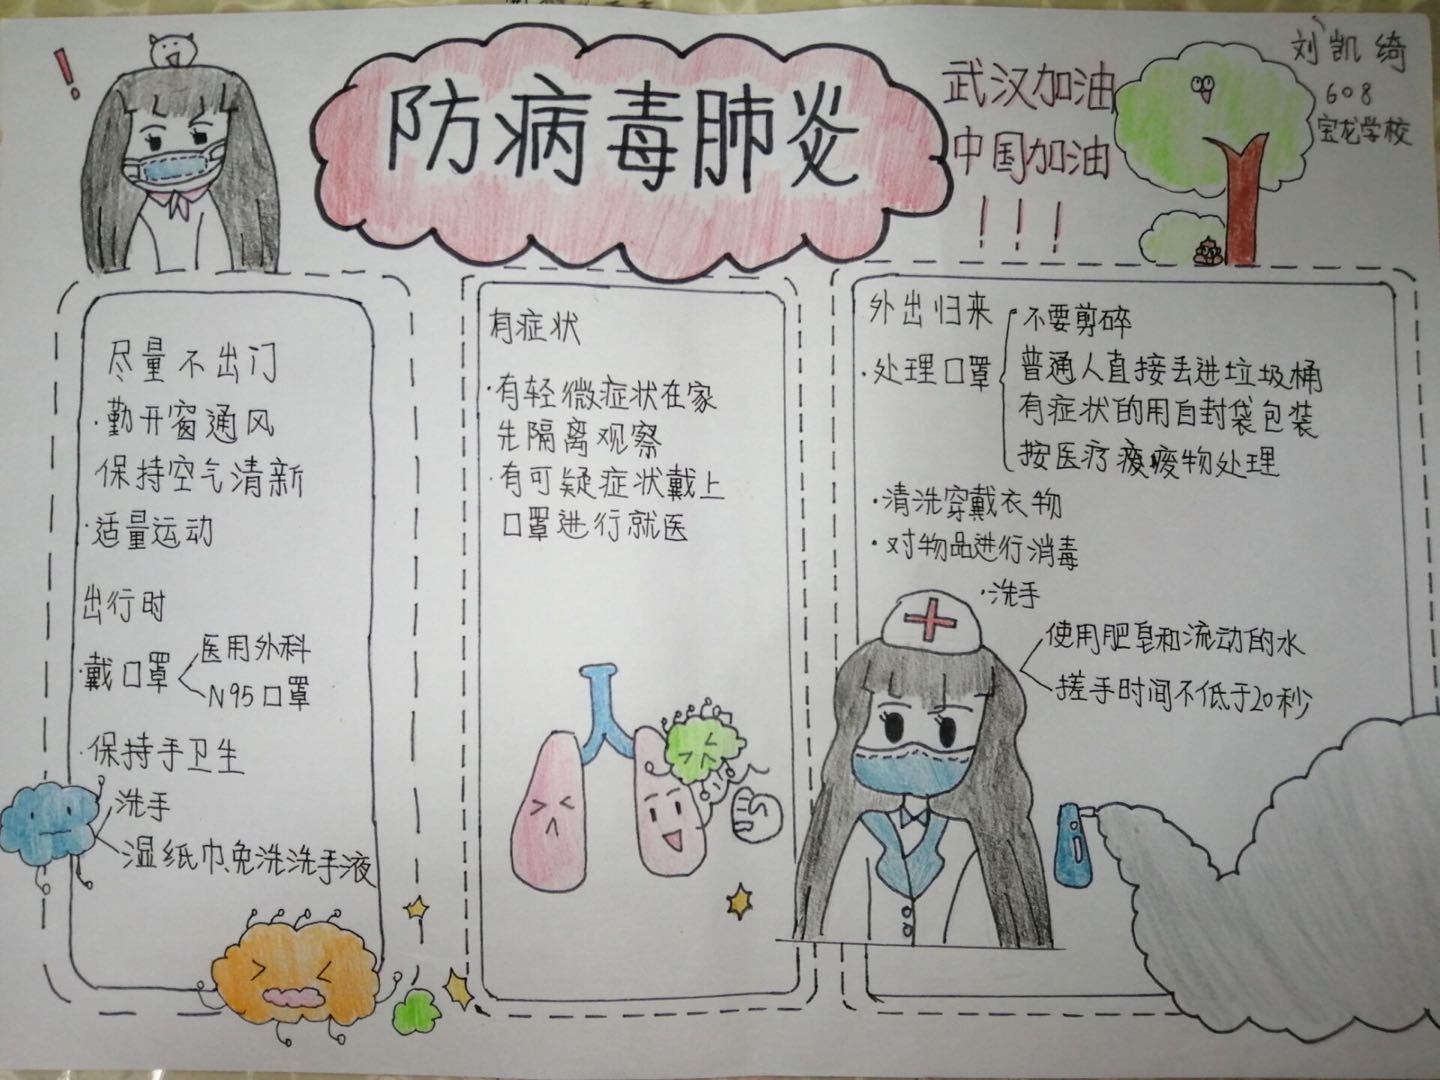 防病毒肺炎
武汉加油
中国加油
！！！
刘凯绮
608
宝龙学校
！
尽量不出门
·勤开窗通风
保持空气清新
·适量运动
出行时
·戴口罩
医用外科
N95口罩
·保持手卫生
洗手
湿纸巾、免洗洗手液
有症状
·有轻微症状在家
先隔离观察
·有可疑症状戴上
口罩进行就医
外出归来
·处理口罩
不要剪碎
普通人直接丢进垃圾桶
有症状的用自封袋包装
按医疗废物处理
·清洗穿戴衣物
·对物品进行消毒
·洗手
使用肥皂和流动的水
搓手时间不低于20秒